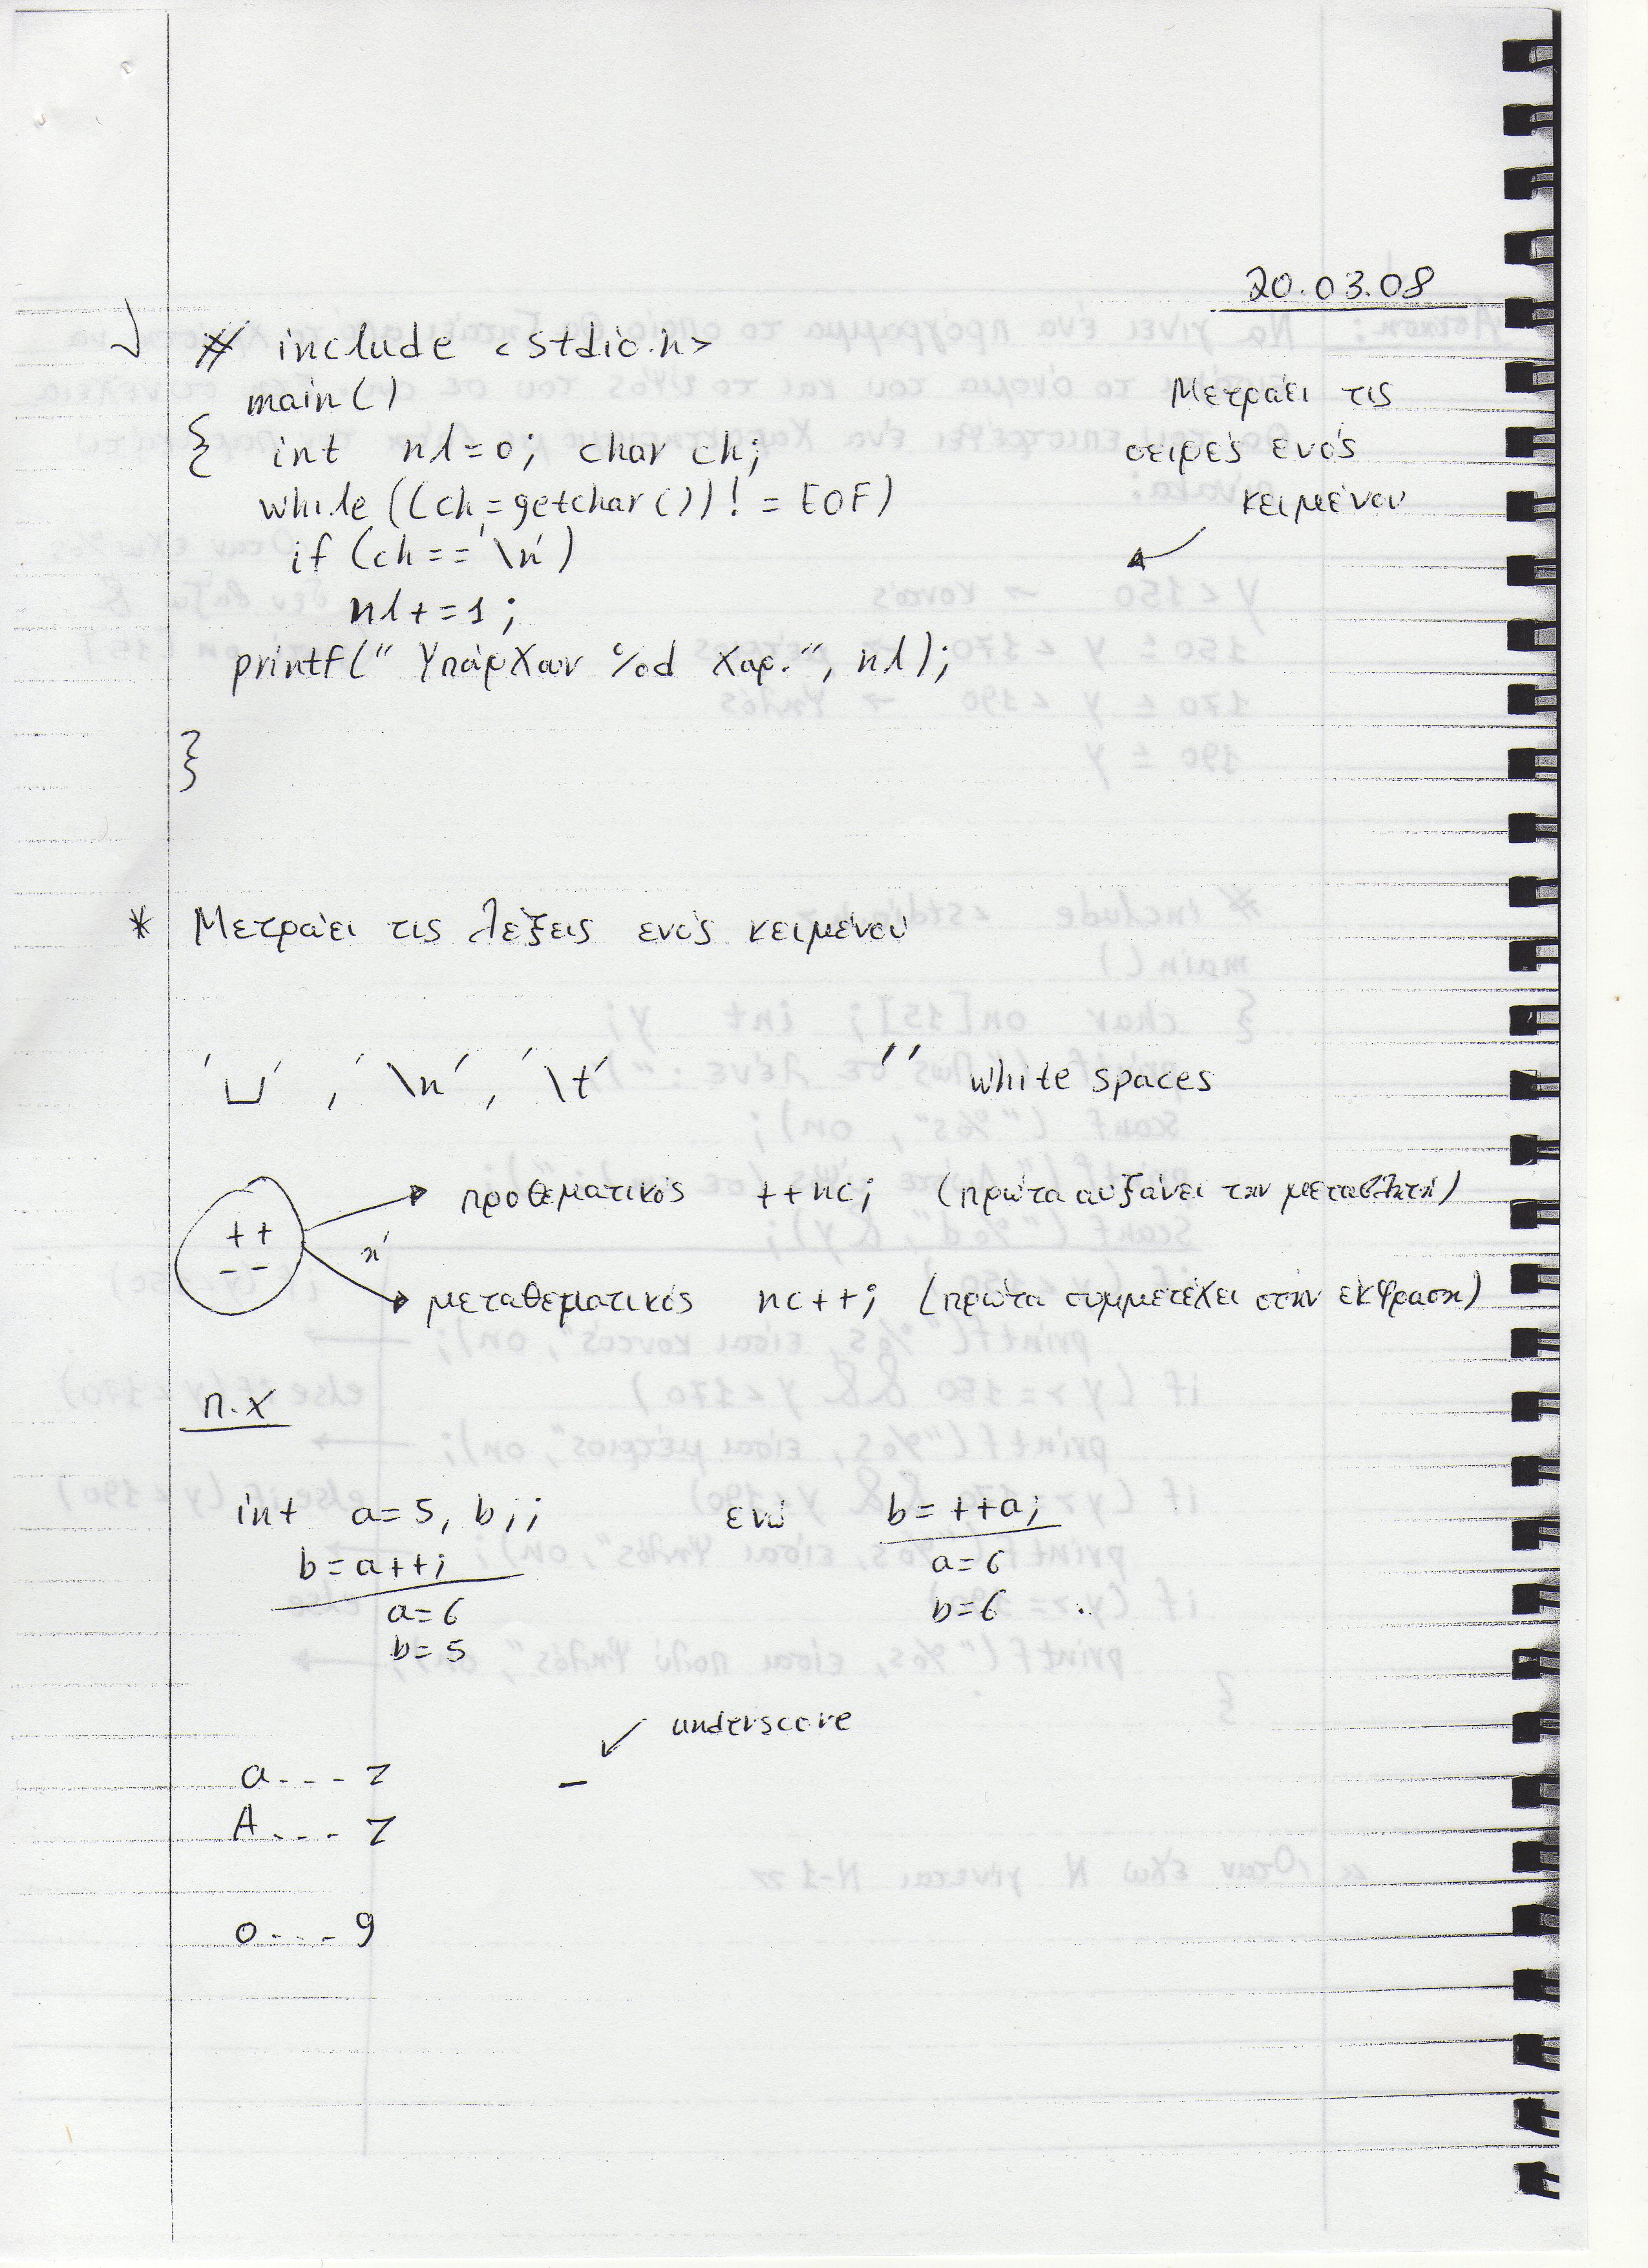 20.03.08
# include <stdio.h>
main()
{ int nl=0; char ch;
while ((ch=getchar())!=EOF)
if (ch=='\n')
nl+=1;
printf(" Υπάρχαν %d χαρ.", nl);
}
Μετράει τις
σειρές ενός
κειμένου
* Μετράει τις λέξεις ενός κειμένου
'␣', '\n', '\t' '' white spaces
++ --
προθεματικός ++nc; (πρώτα αυξάνει την μεταβλητή)
ή
μεταθεματικός nc++; (πρώτα συμμετέχει στην έκφραση)
π.χ
int a=5, b;; ενώ b=++a;
b=a++; a=6
a=6 b=6
b=5
underscore
a---z _
A---Z
0---9